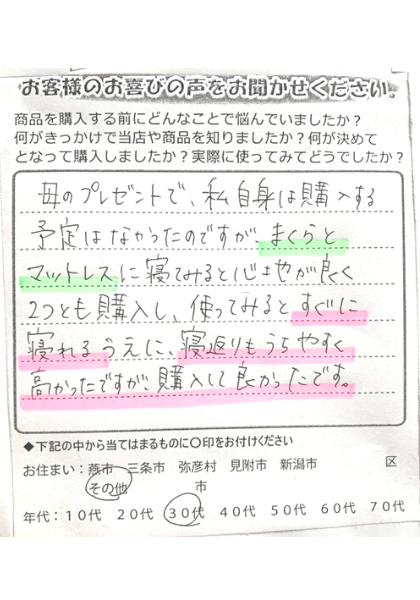 お客様のお喜びの声をお聞かせください。
商品を購入する前にどんなことで悩んでいましたか？
何がきっかけで当店や商品を知りましたか？何が決めて
となって購入しましたか？実際に使ってみてどうでしたか？
母のプレゼントで、私自身は購入する
予定はなかったのですが まくらと
マットレスに寝てみると心地が良く
2つとも購入し、使ってみると すぐに
寝れるうえに、寝返りもうちやすく
高かったですが、購入して良かったです。
◆下記の中から当てはまるものに〇印をお付けください
お住まい：燕市 三条市 弥彦村 見附市 新潟市 区
その他 市
年代：１０代 ２０代 ３０代 ４０代 ５０代 ６０代 ７０代